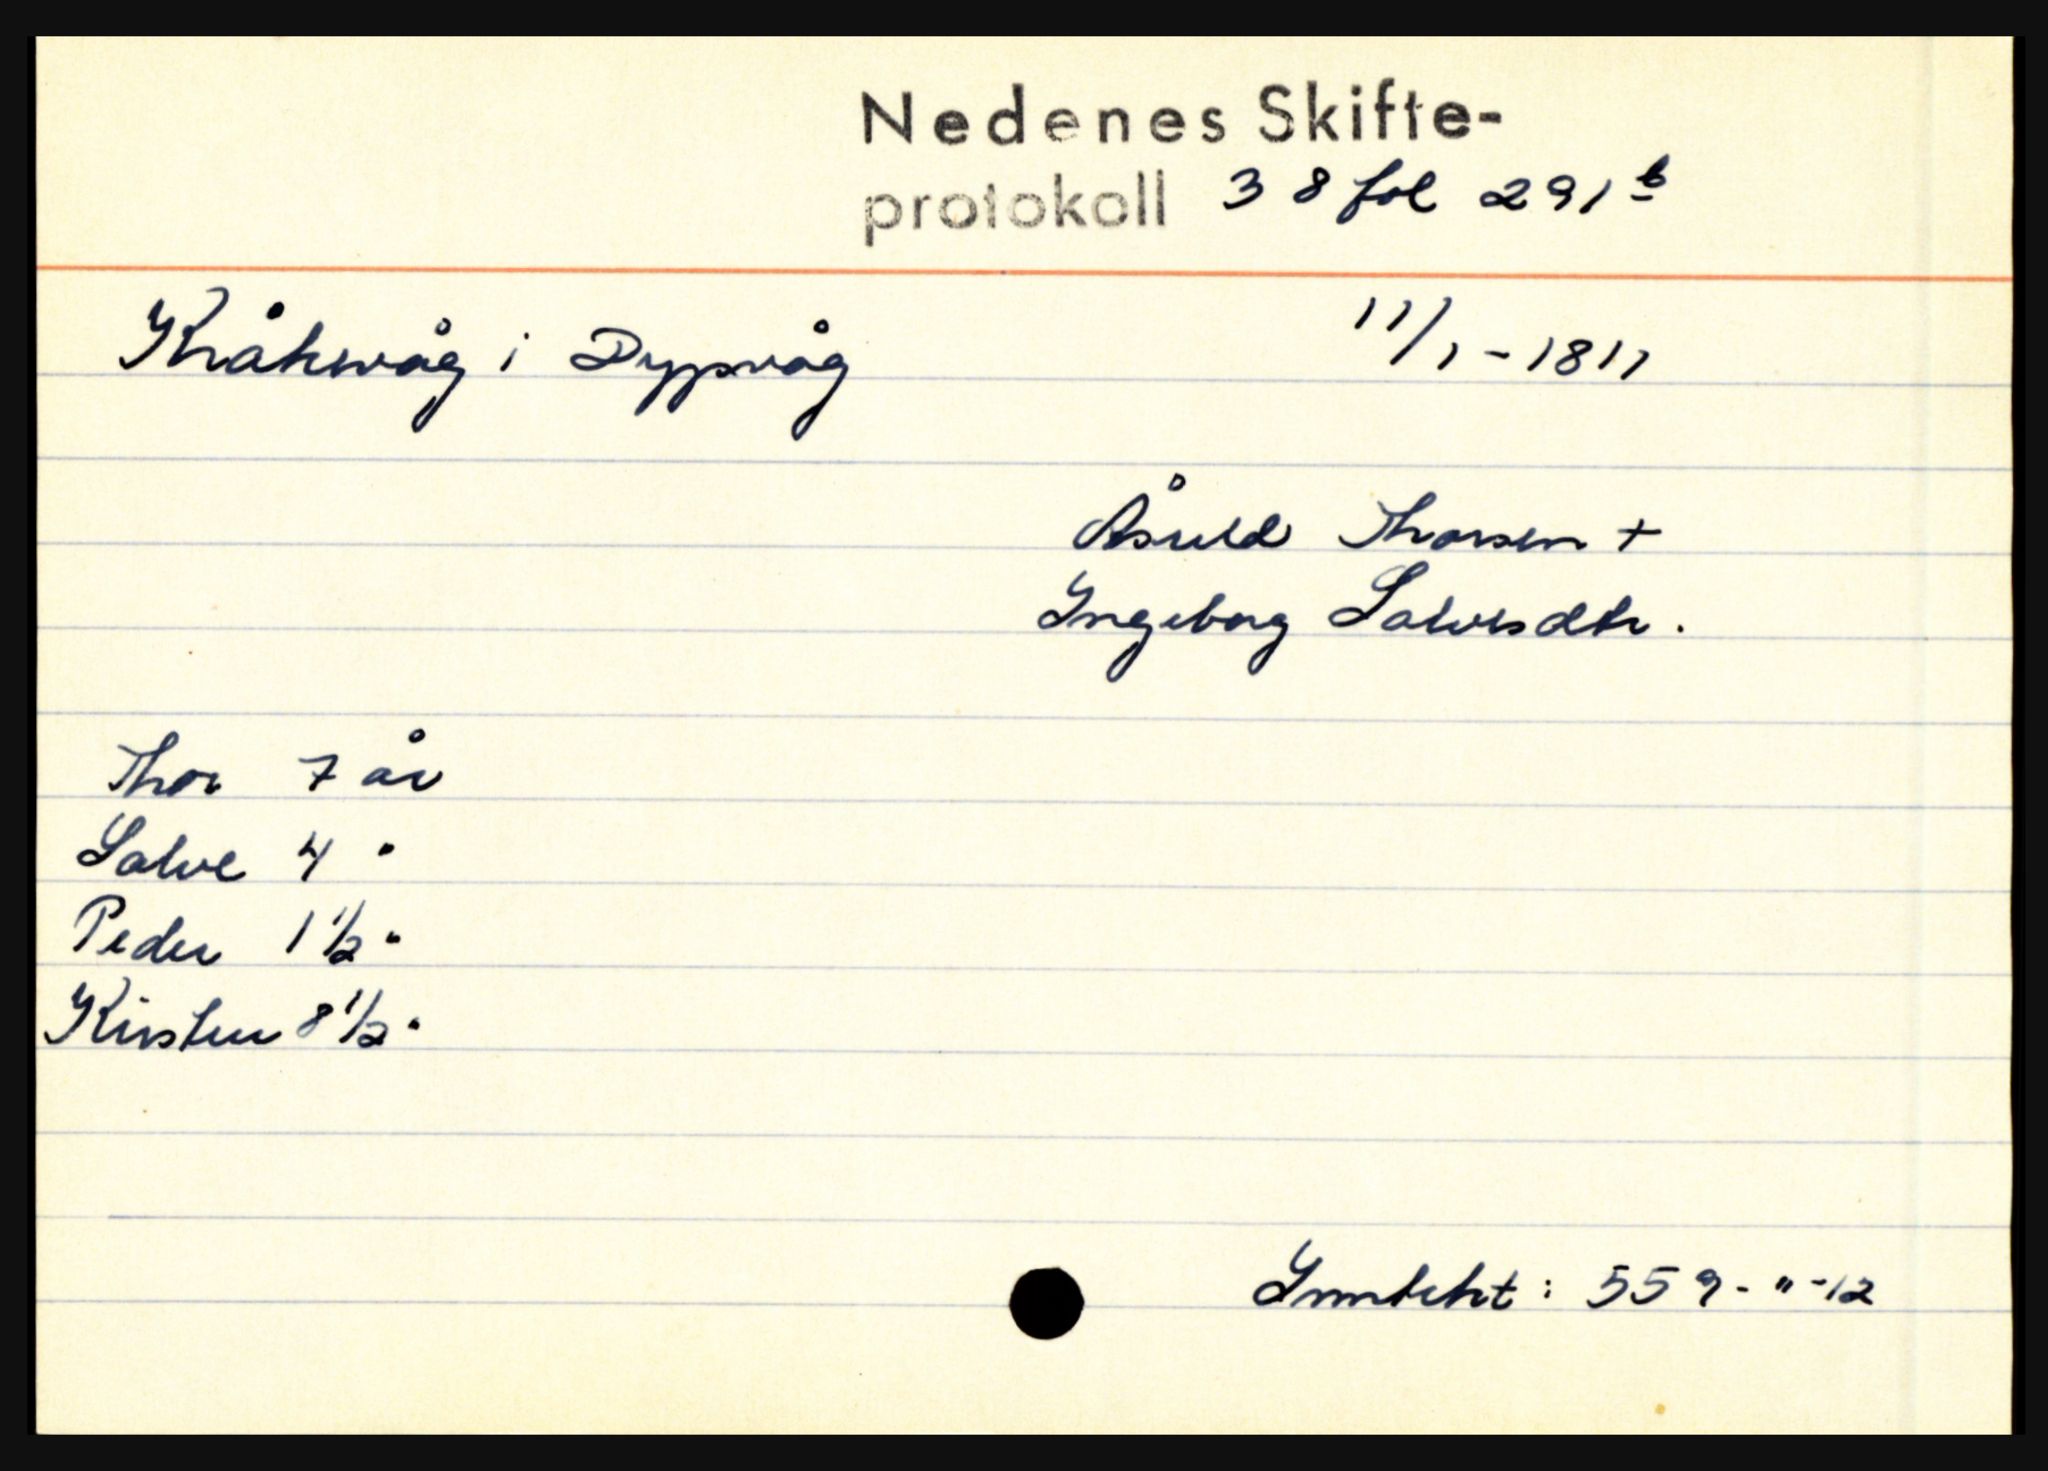 Nedenes Skifte-
protokoll 38 fol 291 b
Kråkevåg i Dypvåg 11/1 - 1811
Åsuld Thorsen +
Ingeborg Salvesdtr.
Thor 7 år
Salve 4 "
Peder 1 1/2 "
Kirsten 8 1/2 "
Inntekt: 559 - " - 12